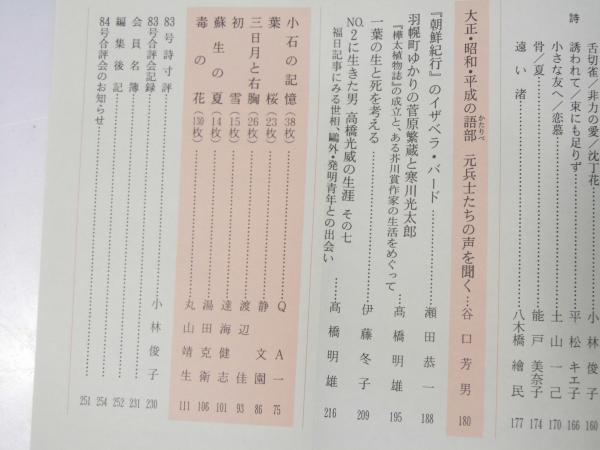 詩
舌切雀／非力の愛／沈丁花……小林俊子 160
誘われて／束にも足りず……平松キエ子 166
小さな友へ／恋慕……土山一己 170
骨／夏……能戸美奈子 174
遠い渚……八木橋繪民 177
大正・昭和・平成の語部 元兵士たちの声を聞く…谷口芳男 180
かたりべ
『朝鮮紀行』のイザベラ・バード……瀬田恭一 188
羽幌町ゆかりの菅原繁蔵と寒川光太郎
『樺太植物誌』の成立と、ある芥川賞作家の生活をめぐって……髙橋明雄 195
一葉の生と死を考える……伊藤冬子 209
NO.2に生きた男 高橋光威の生涯 その七
福日記事にみる世相、鷗外・発明青年との出会い……髙橋明雄 216
小石の記憶（38枚）……Q A一 75
葉桜（23枚）……静文園 86
三日月と右胸（26枚）……渡辺佳 93
初雪（15枚）……達海健志 101
蘇生の夏（14枚）……湯田克衛 106
毒の花（130枚）……丸山靖生 111
83号詩寸評……小林俊子 230
83号合評会記録……231
会員名簿……252
編集後記……254
84号合評会のお知らせ……251